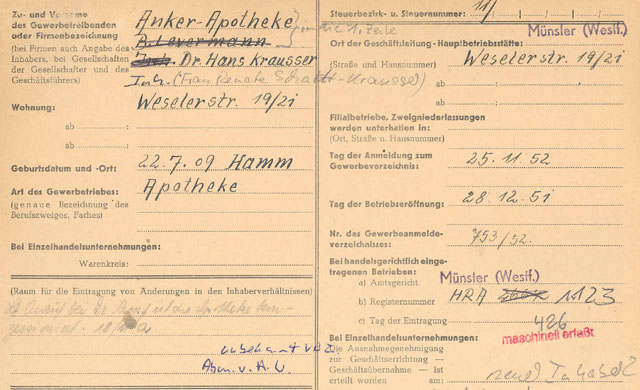 Zu- und Vorname
des Gewerbetreibenden
oder Firmenbezeichnung
(bei Firmen auch Angabe des
Inhabers, bei Gesellschaften
der Gesellschafter und des
Geschäftsführers)
Anker-Apotheke
B. Levermann
in die 1. Zeile
Inh. Dr. Hans Krausser
Inh. (Frau Renate Schmidt-Krausser)
Wohnung:
Weselerstr. 19/21
ab :
ab :
Geburtsdatum und -Ort:
22.7.09 Hamm
Art des Gewerbetriebes:
(genaue Bezeichnung des
Berufszweiges, Faches)
Apotheke
Bei Einzelhandelsunternehmungen:
Warenkreis:
(Raum für die Eintragung von Änderungen in den Inhaberverhältnissen)
die Apotheke
unbekannt
Steuerbezirk- u. Steuernummer: 11/
Münster (Westf.)
Ort der Geschäftsleitung - Hauptbetriebsstätte:
(Straße und Hausnummer)
Weselerstr. 19/21
ab :
ab :
Filialbetriebe, Zweigniederlassungen
werden unterhalten in:
(Ort, Straße u. Hausnummer)
Tag der Anmeldung zum
Gewerbeverzeichnis:
25.11.52
Tag der Betriebseröffnung:
28.12.51
Nr. des Gewerbeanmelde-
verzeichnisses:
753/52.
Bei handelsgerichtlich einge-
tragenen Betrieben:
a) Amtsgericht
Münster (Westf.)
b) Registernummer
HRA 1123
c) Tag der Eintragung
426
maschinell erfaßt
Bei Einzelhandelsunternehmungen:
Die Ausnahmegenehmigung
zur Geschäftserrichtung —
Geschäftsübernahme — ist
erteilt worden am: